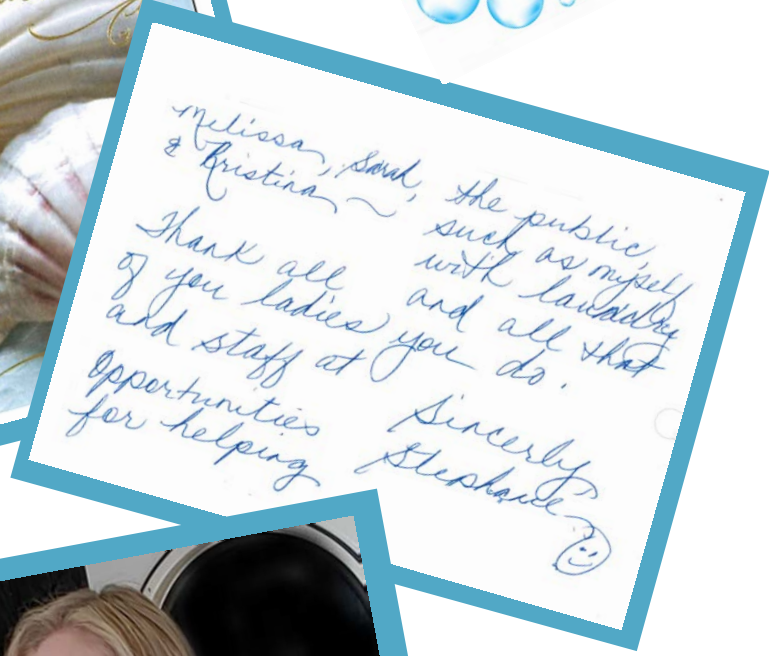 Melissa, Sarah,
& Kristina
Thank all
of you ladies
and staff at
Opportunities
for helping
the public,
such as myself
with laundry
and all that
you do.
Sincerly,
Stephanie